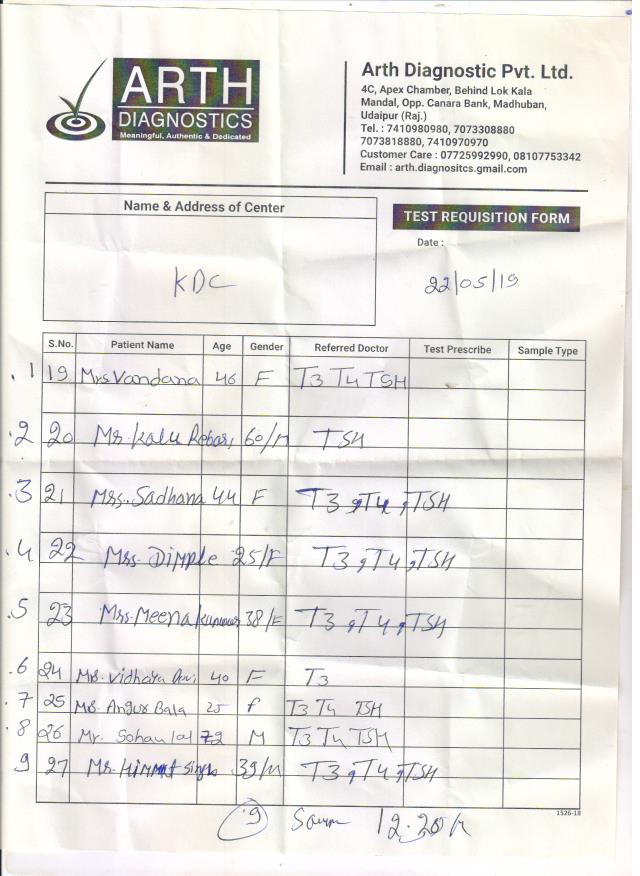 ARTH
DIAGNOSTICS
Meaningful, Authentic & Dedicated
Arth Diagnostic Pvt. Ltd.
4C, Apex Chamber, Behind Lok Kala
Mandal, Opp. Canara Bank, Madhuban,
Udaipur (Raj.)
Tel. : 7410980980, 7073308880
7073818880, 7410970970
Customer Care : 07725992990, 08107753342
Email : arth.diagnositcs.gmail.com
Name & Address of Center
KDC
TEST REQUISITION FORM
Date :
22/05/19
S.No. Patient Name Age Gender Referred Doctor Test Prescribe Sample Type
.1 19 Mrs Vandana 46 F T3 T4 TSH
.2 20 Mr. Kalu 60/M TSH
.3 21 Mrs. Sadhana 44 F T3, T4, TSH
.4 22 Mrs. Dimple 25/F T3, T4, TSH
.5 23 Mrs. Meena 38/F T3, T4, TSH
.6 24 Mrs. Vidhaya 40 F T3
.7 25 Bala 25 f T3 T4 TSH
.8 26 Mr. Sohan lal 72 M T3 T4 TSH
9 27 Mr. Himmat Singh 39/M T3, T4, TSH
9 12.20
1526-18